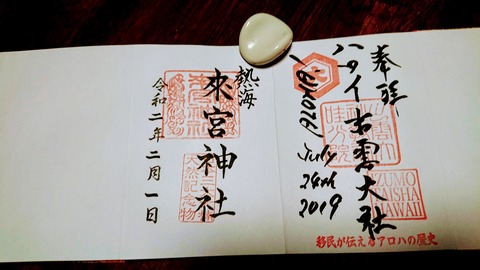 奉拝
ハワイ出雲大社
July
24th
2019
IZUMO
TAISHA
HAWAII
移民が伝えるアロハの歴史
熱海
來宮神社
天然記念物
令和二年二月一日